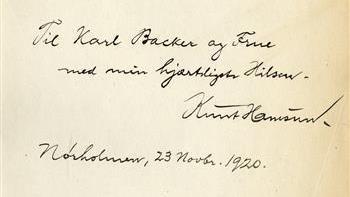 Til Karl Backer og Frue
med min hjærtligste Hilsen.
Knut Hamsun.
Nørholmen, 23 Novbr. 1920.